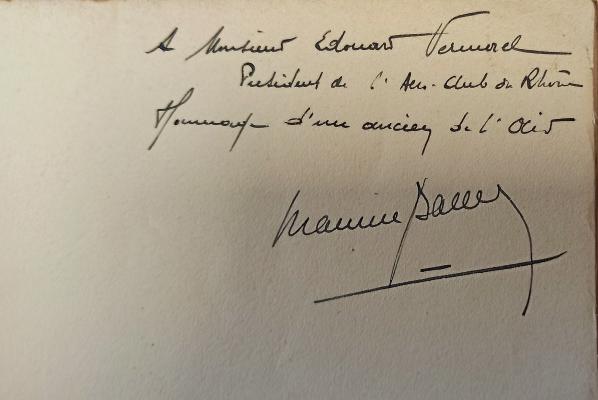 A Monsieur Edouard Vermorel
Président de l'Aéro-Club du Rhône
Hommage d'un ancien de l'Air
Maurice